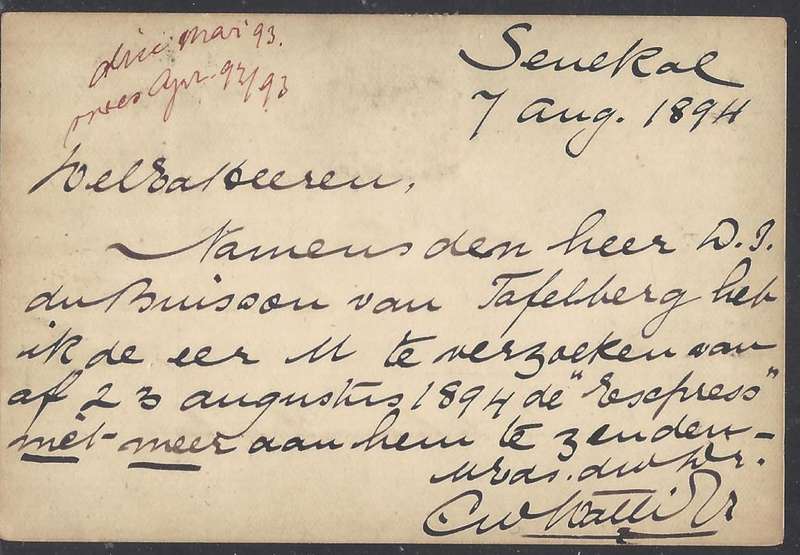 Mai 93.
Apr. 92/93
Senekal
7 Aug. 1894
WelEd Heeren,
Namens den heer D. J.
du Buisson van Tafelberg heb
ik de eer U te verzoeken van
af 23 augustus 1894 de "Express"
niet meer aan hem te zenden –
UEds. dw Dr.